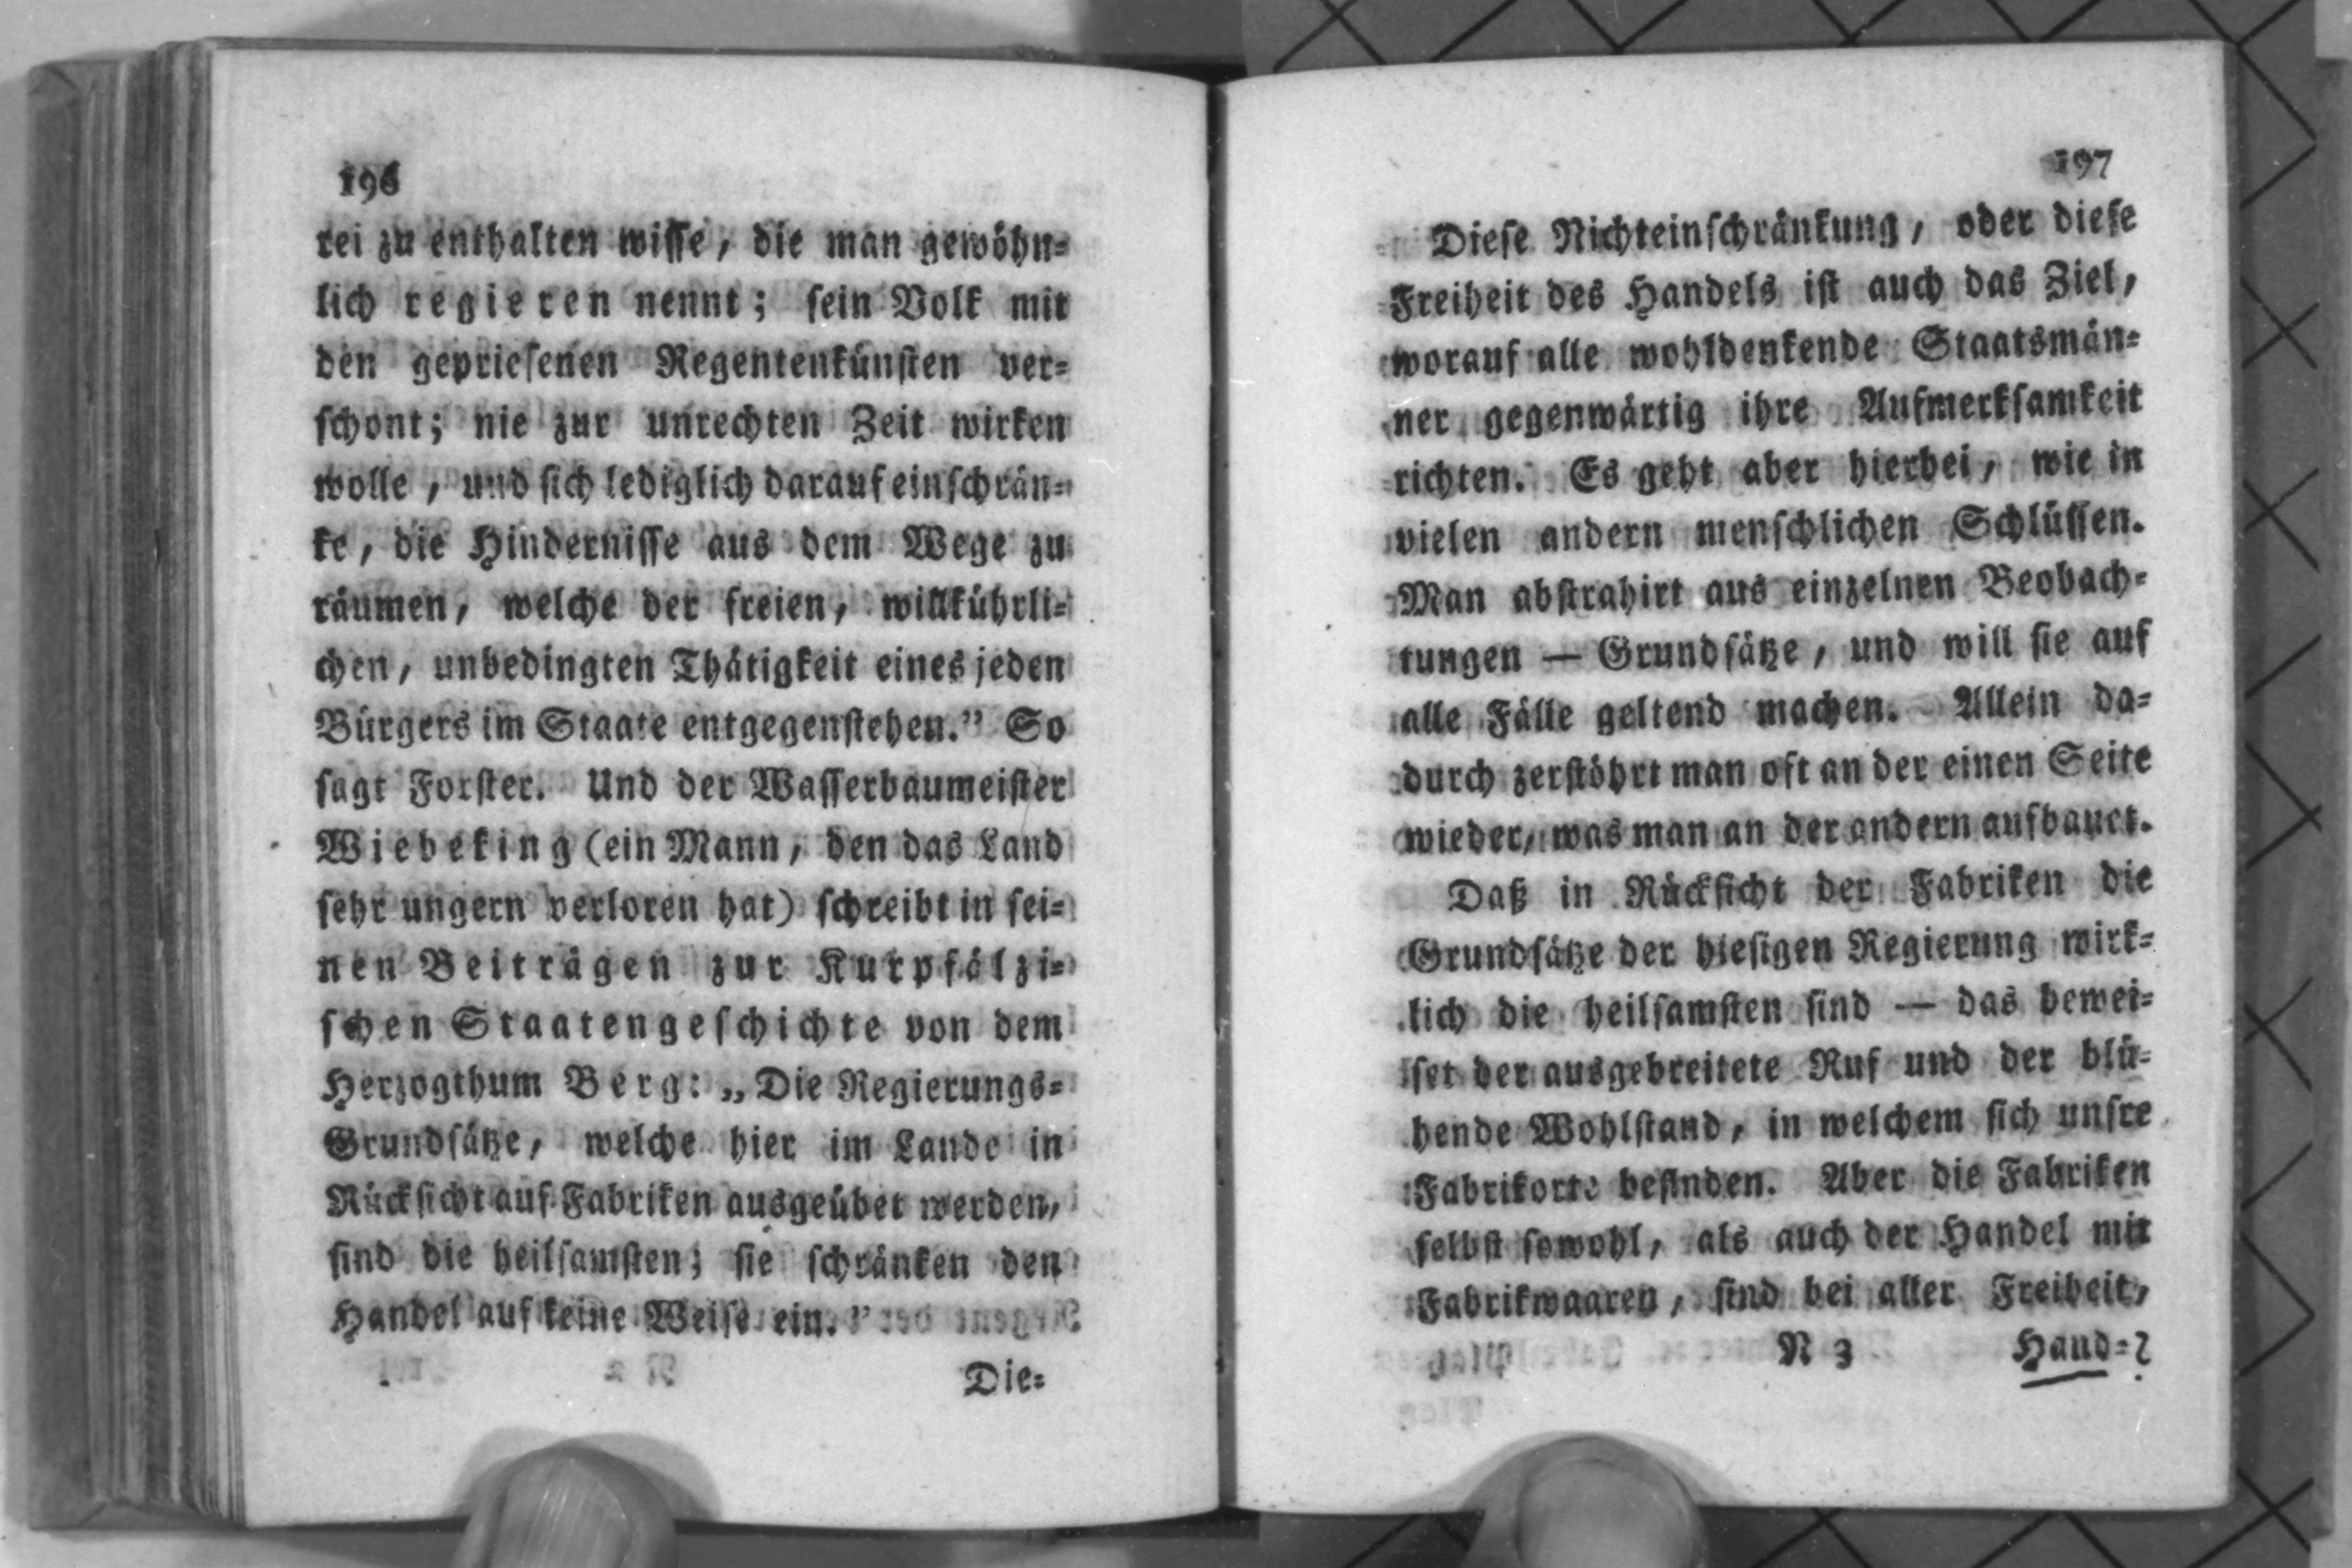 196
rei zu enthalten wisse, die man gewöhn-
lich regieren nennt; sein Volk mit
den gepriesenen Regentenkünsten ver-
schont; nie zur unrechten Zeit wirken
wolle, und sich lediglich darauf einschrän-
ke, die Hindernisse aus dem Wege zu
räumen, welche der freien, willkührli-
chen, unbedingten Thätigkeit eines jeden
Bürgers im Staate entgegenstehen.” So
sagt Forster. Und der Wasserbaumeister
Wiebeking (ein Mann, den das Land
sehr ungern verloren hat) schreibt in sei-
nen Beiträgen zur Kurpfälzi-
schen Staatengeschichte von dem
Herzogthum Berg: „Die Regierungs-
Grundsätze, welche hier im Lande in
Rücksicht auf Fabriken ausgeübet werden,
sind die heilsamsten; sie schränken den
Handel auf keine Weise ein.”
Die-
197
Diese Nichteinschränkung, oder diese
Freiheit des Handels ist auch das Ziel,
worauf alle wohldenkende Staatsmän-
ner gegenwärtig ihre Aufmerksamkeit
richten. Es geht aber hierbei, wie in
vielen andern menschlichen Schlüssen.
Man abstrahirt aus einzelnen Beobach-
tungen — Grundsätze, und will sie auf
alle Fälle geltend machen. Allein da-
durch zerstöhrt man oft an der einen Seite
wieder, was man an der andern aufbauet.
Daß in Rücksicht der Fabriken die
Grundsätze der hiesigen Regierung wirk-
lich die heilsamsten sind — das bewei-
set der ausgebreitete Ruf und der blü-
hende Wohlstand, in welchem sich unsre
Fabrikorte befinden. Aber die Fabriken
selbst sowohl, als auch der Handel mit
Fabrikwaaren, sind bei aller Freiheit,
N 3 Hand-?